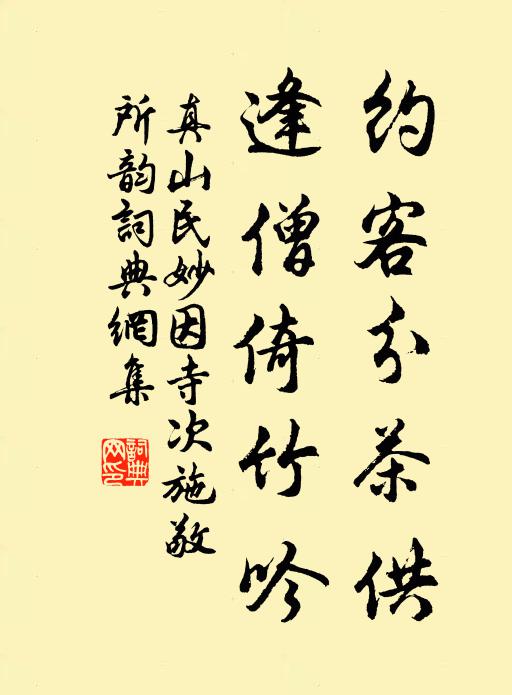 约客分茶供
逢僧倚竹吟
真山民妙因寺次施敬
所韵詞典網集
詞典網印